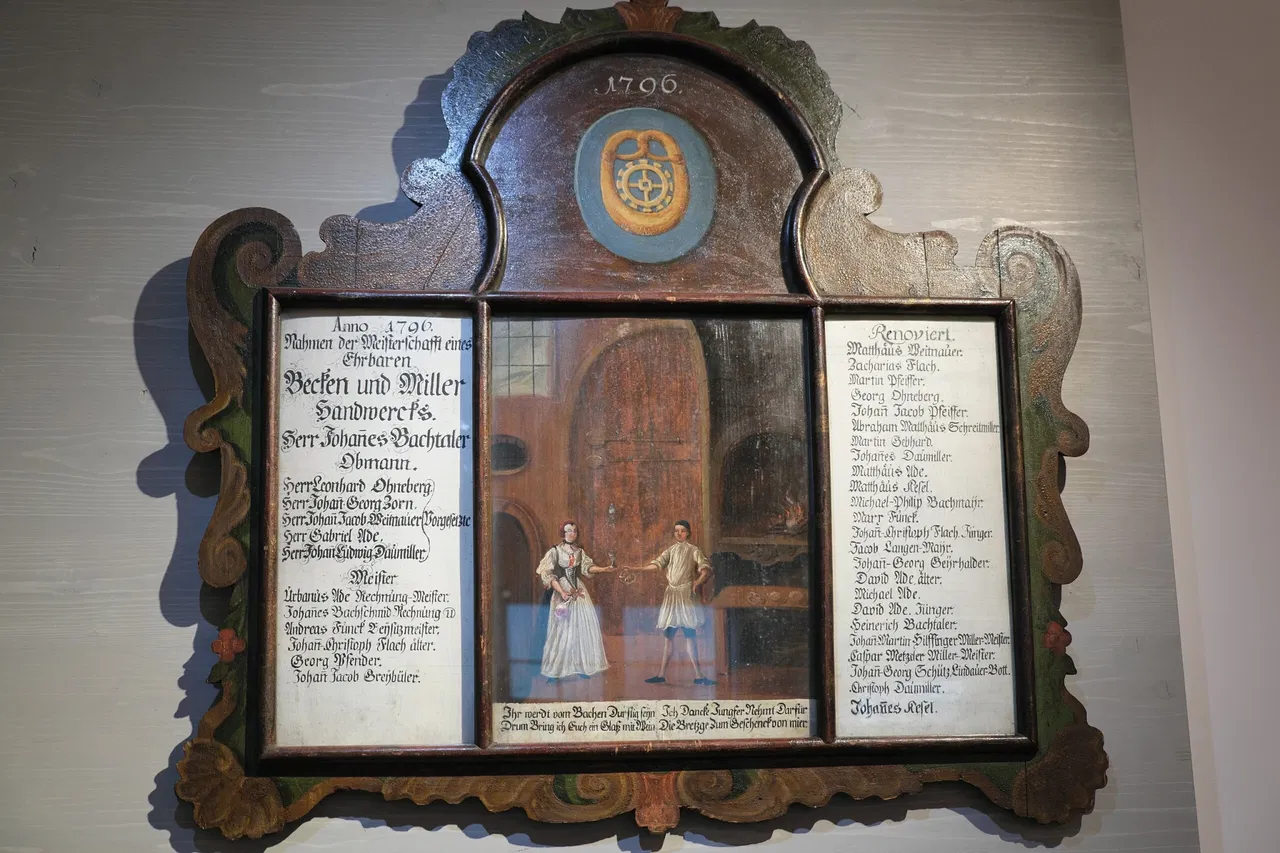 1796.
Anno 1796.
Nahmen der Meisterschafft eines
Ehrbaren
Becken und Miller
Handwercks.
Herr Johañes Bachtaler
Obmann.
Herr Leonhard Ohneberg
Herr Johañ Georg Zorn.
Herr Johañ Jacob Weimauer Vorgesetzte
Herr Gabriel Ade.
Herr Johañ Ludwig Daümiller
Meister
Urbanüs Ade Rechnung-Meister.
Johañes Bachschmid Rechnung
Andreas Fünck Beysitzmeister.
Johañ-Christoph Flach älter.
Georg Pfender.
Johañ Jacob Greÿbüler.
Ihr werdt vom Bachen Durstig seÿn
Drum Bring ich Euch ein Glaß mit Wein
Ich Dancke Jungfer Nehmt Darfür
Die Bretzge Zum Geschenck von mier
Renoviert.
Matthäüs Weimaüer.
Zacharias Flach.
Martin Pfeiffer.
Georg Ohneberg.
Johañ Jacob Pfeiffer.
Abraham Matthäüs Schreitmiller
Martin Gebhard.
Johañes Daümiller.
Matthäüs Ade.
Matthäüs Kesel.
Michael-Philip Bachmaÿr.
Marx Fünck.
Johañ-Christoph Flach, Jünger.
Jacob Langen-Maÿr.
Johañ-Georg Geÿrhalder.
David Ade, älter.
Michael Ade.
David Ade. Jünger.
Heinerich Bachtaler.
Johañ-Martin Hilffinger Miller-Meister.
Caspar Metzeler Miller-Meister.
Johañ-Georg Schütz Lindauer-Bott.
Christoph Daümiller.
Johañes Kesel.